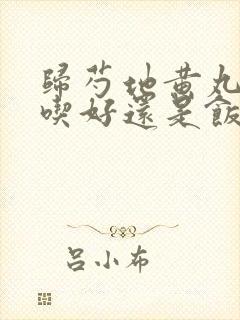 歸芍地黃丸
喫好還是飯
呂小布